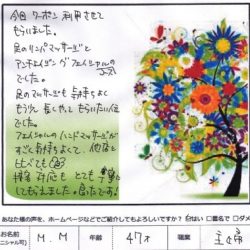 今回クーポン利用させて
もらいました。
足のリンパマッサージと
アンチエイジングフェイシャルのコース
でした。
足のマッサージも気持ちよく
もう少し長くやってもらいたい位
でした。
フェイシャルのハンドマッサージが
すごく気持ちよくて、他店と
比べても
接客対応もとても丁寧に
してもらえました。良かったです!
あなた様の声を、ホームページなどでご紹介してもよろしいですか? はい □匿名で □ダメ
お名前 M.M 年齢 47才 職業 主婦
ニシャル可)